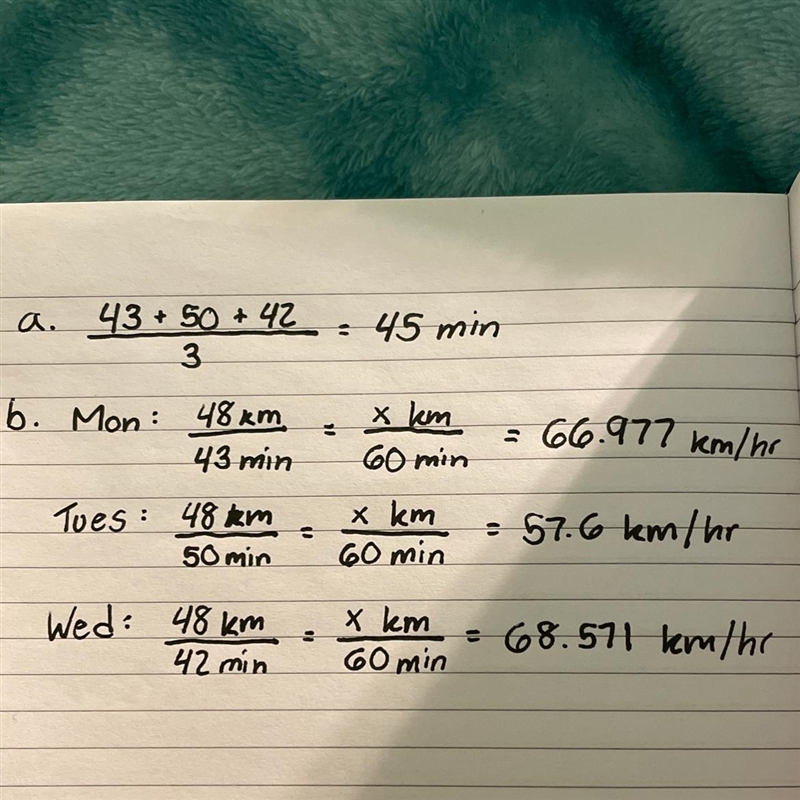 a. 43 + 50 + 42 / 3 = 45 min
b. Mon: 48 km / 43 min = x km / 60 min = 66.977 km/hr
Tues: 48 km / 50 min = x km / 60 min = 57.6 km/hr
Wed: 48 km / 42 min = x km / 60 min = 68.571 km/hr